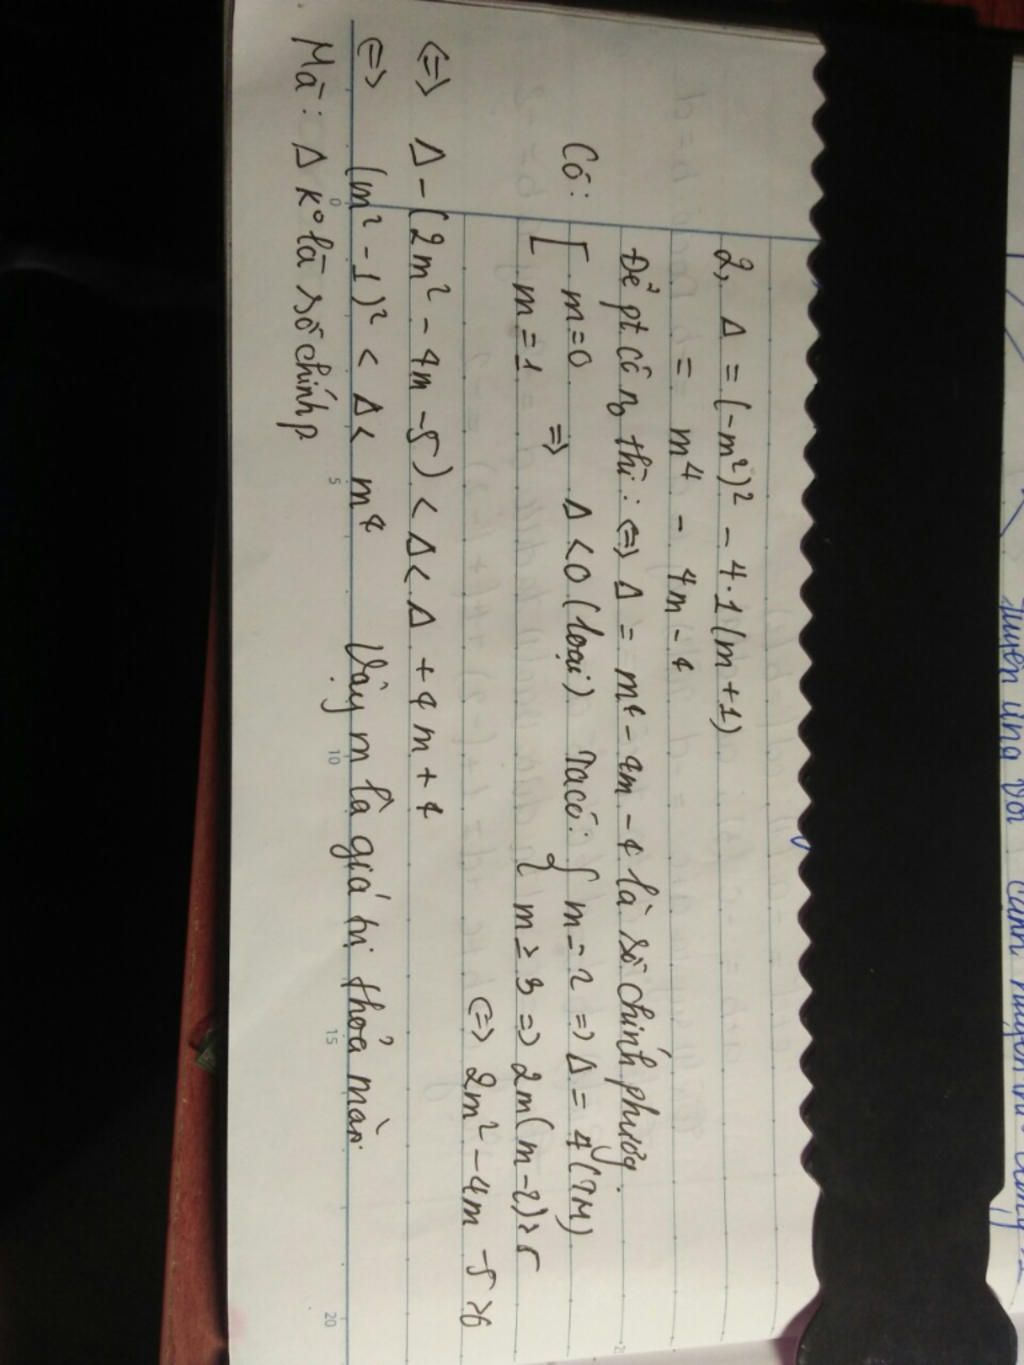 2, Δ = (-m²)² - 4.1(m+1)
= m⁴ - 4m - 4
Để pt có n₀ thì: ⇔ Δ = m⁴ - 4m - 4 là số chính phương.
Có: [ m=0 ⇒ Δ<0 (loại) Ta có: { m=2 ⇒ Δ = 4 (TM)
m=1 m≥3 ⇒ 2m(m-2)>5
⇔ 2m² - 4m - 5 >0
⇔ Δ - (2m² - 4m - 5) < Δ < Δ + 4m + 4
⇔ (m² - 1)² < Δ < m⁴ Vậy m là giá trị thỏa mãn.
Mà: Δ k° là số chính p
5
10
15
20